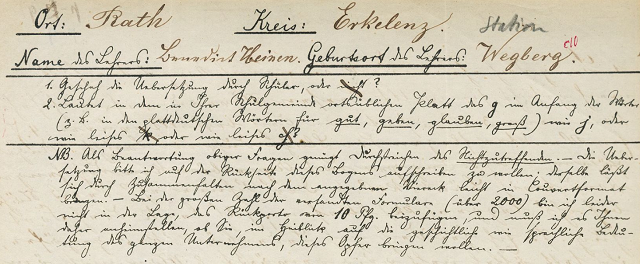 Ort: Rath Kreis: Erkelenz. Station
Name des Lehrers: Benedict Heinen. Geburtsort des Lehrers: Wegberg.
1. Geschah die Uebersetzung durch Schüler, oder nicht?
2. Lautet in dem in Ihrer Schulgemeinde ortsüblichen Platt das g im Anfang der Worte
(z. B. in den plattdeutschen Wörtern für gut, geben, glauben, groß) wie j, oder
wie leises k, oder wie leises ch?
NB. Als Beantwortung obiger Fragen genügt Durchstreichen des Nichtzutreffenden. — Die Ueber-
setzung bitte ich auf der Rückseite dieses Bogens aufschreiben zu wollen; derselbe läßt
sich durch Zusammenfalten nach dem angegebenen Knick leicht in Couvertformat
bringen. — Bei der großen Zahl der versandten Formulare (über 2000) bin ich leider
nicht in der Lage, das Rückporto von 10 Pfg. beizufügen, und muß ich es Ihnen
daher anheimstellen, ob Sie, im Hinblick auf die geschichtlich wie sprachliche Bedeu-
tung des ganzen Unternehmens, dieses Opfer bringen wollen. —